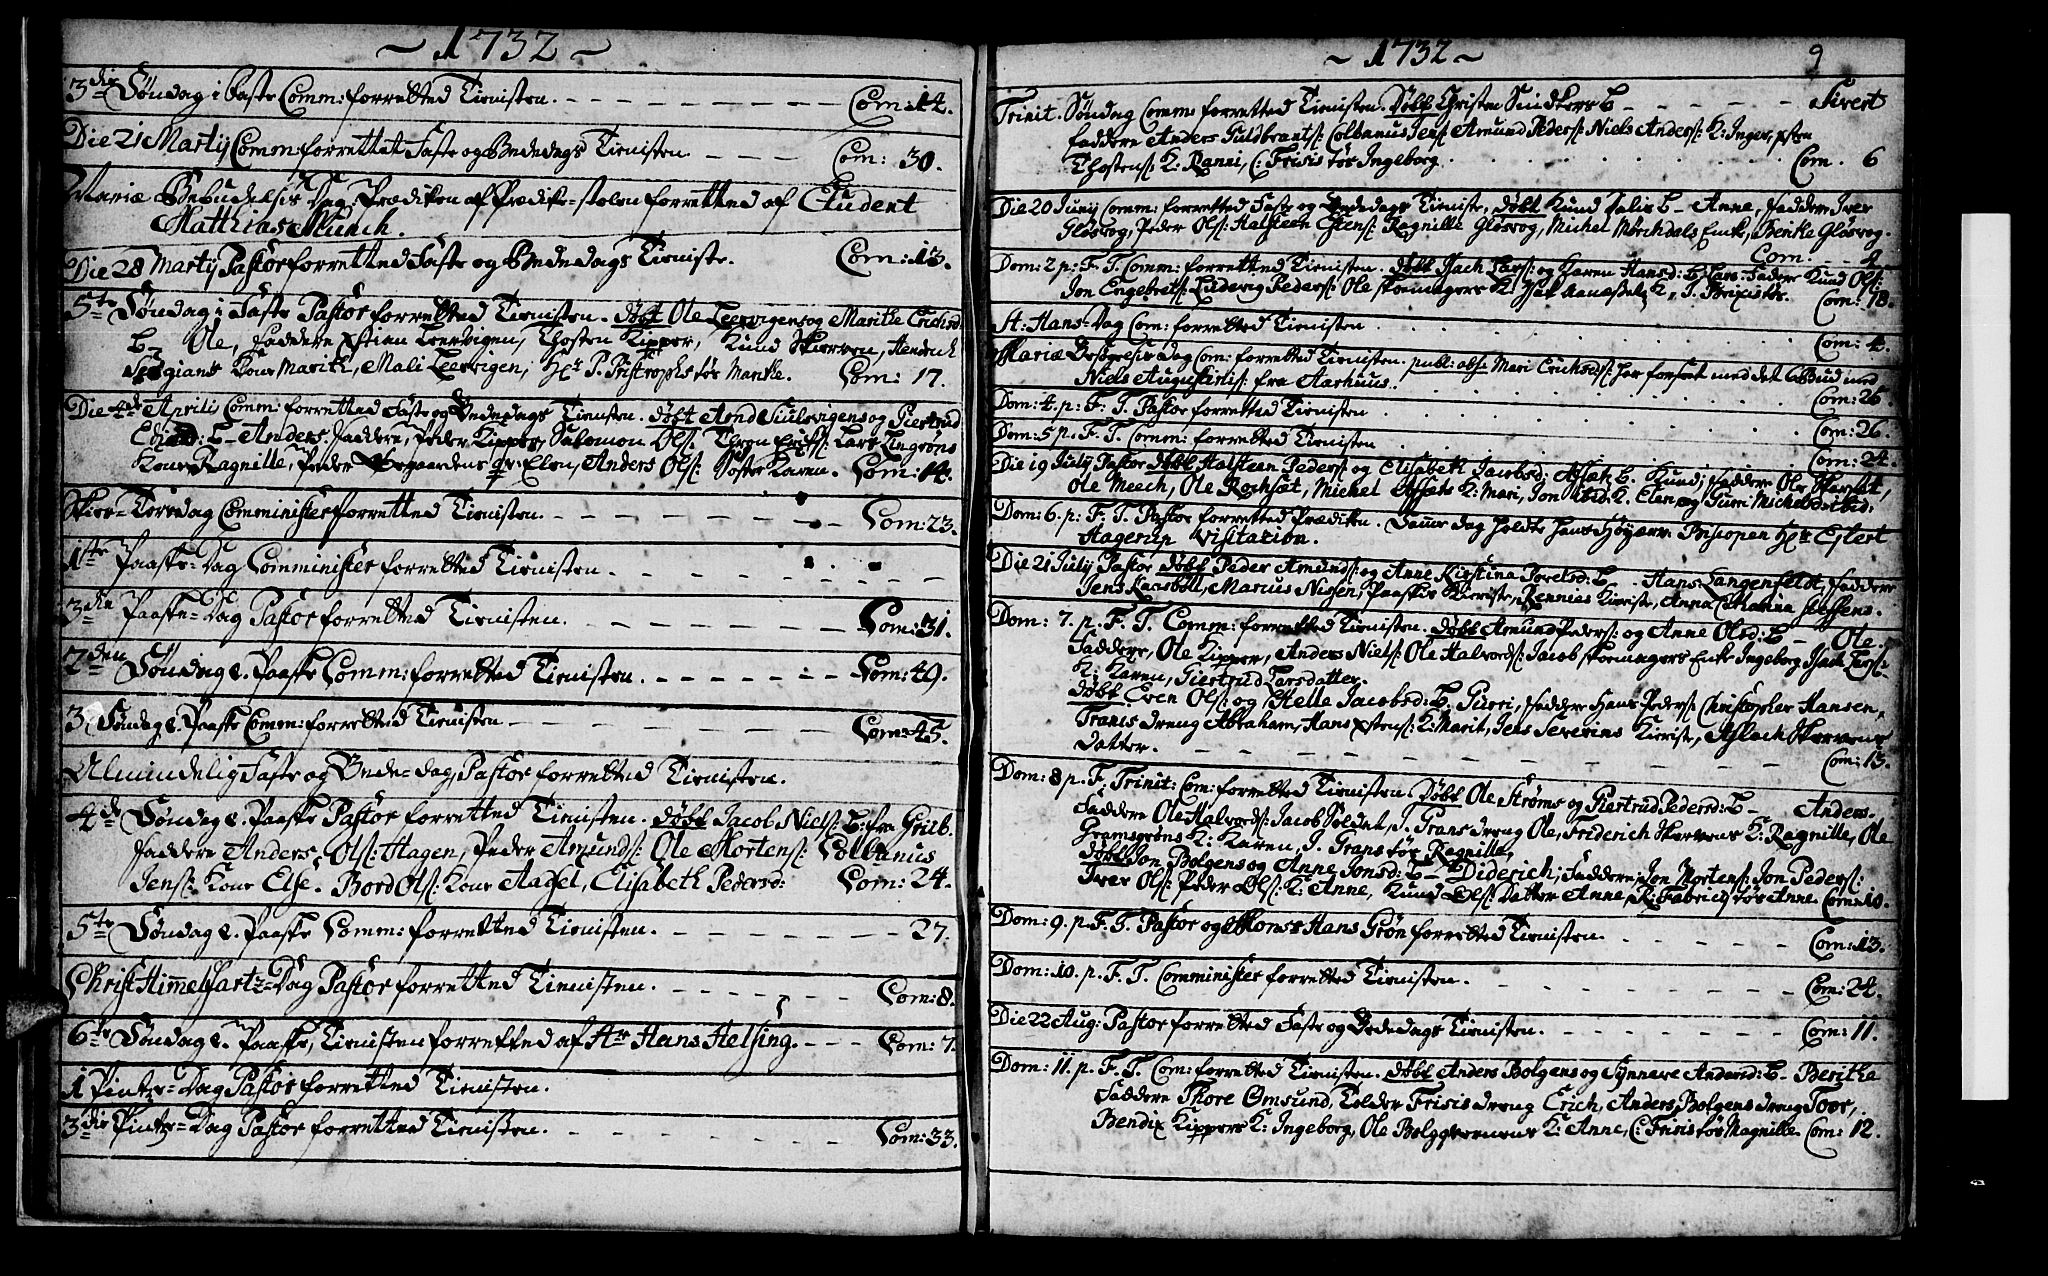 ~ 1732 ~
3die Söndag i Faste Comm: forretted Tienisten. Com: 14.
Die 21 Martij Comm: forrettet Faste og Bededags Tienisten. Com: 30.
Mariæ Bebudelsis Dag, Prædiken af Prædike-stolen forretted af Student
Matthias Munch.
Die 28 Martij Pastor forretted Faste og Bededags Tieniste. Com: 13.
5te Söndag i Faste Pastor forretted Tienisten. döbt Ole Leervigens og Maritte Erichsd:
B- Ole, Faddere Leervigen, Thosten Kipper, Knud Skierven, Hendrich
Kone Marith, Mali Leervigen, Hr: P. tös Mantke. Com: 17.
Die 4de Aprili Comm: forretted Faste og Bededags Tienisten. döbt Arnd Siulsvigens og Giertrud
B- Anders. Faddere, Peder Kipper, Salomon Ols: Thron Erichs: Lars Engröns
Kone Ragnille, Peder Elen, Anders Ols: Söster Karen. Com: 14.
Skier-Torsdag Comminister forretted Tienisten. Com: 23.
1ste Paaske-Dag Comminister forretted Tienisten.
3die Paaske-Dag Pastor forretted Tienisten. Com: 31.
2den Söndag e. Paaske Comm: forretted Tienisten. Com: 49.
3. Söndag e. Paaske Comm: forretted Tienisten Com: 45.
Almindelig Faste og Bede-dag, Pastor forretted Tienisten.
4de Söndag e. Paaske Pastor forretted Tienisten. döbt Jacob Niels: B: fra Grilb.
Faddere Anders Ols: Hagen, Peder Amunds: Ole Mortens: Colbanus
Jens: Kone Else. Bord Ols: Kone Aassel, Elisabeth Pedersd: Com: 24.
5te Söndag e. Paaske Comm: forretted Tienisten. 27.
Christ Himmelfartz-Dag Pastor forretted Tienisten. Com: 8.
6te Söndag e. Paaske, Tienisten forretted af Hr: Hans Helsing. Com: 7.
1 Pintze-Dag Pastor forretted Tienisten.
3die Pintze-Dag Pastor forretted Tienisten. Com: 33.
~ 1732 ~ 9
Trinit. Söndag Comm: forretted Tienisten. Döbt Christen B- Sivert
Faddere Anders Guldbrants: Colbanus Jens: Amund Peders: Niels Anders: K: Inger,
Thostens: K: Ranni, C: Frisis tös Ingeborg. Com. 6
Die 20 Junij Comm: forretted Faste og Bededags Tieniste. döbt Knud B- Anne, Faddere Iver
Glösvog, Peder Ols: Halsteen Estens: Ragnille Glösvog, Michel Morchdals Enke, Berithe Glösvog.
Com. 4
Dom: 2 p: F. T. Comm: forretted Tienisten. döbt Isach Lars: og Karen Hansd: B: Lars. Fadere Knud Ols:
Jon Engebrets: Ludevig Peders: Ole Skomagers K: K, J. tös. Com: 18.
St: Hans-Dag Com: forretted Tienisten. Com: 4.
Mariæ Besögelsis Dag Com: forretted Tienisten. publ: abs: Mari Erichsd: har forseet mod det 6 Bud med
Niels Augustins: fra Aarhuus. Com: 26.
Dom: 4. p: F: T. Pastor forretted Tienisten Com: 26.
Dom: 5 p. F. T. Comm: forretted Tienisten Com: 24.
Die 19 July Pastor döbt Halsteen Peders: og Elisabeth Jacobsd: B. Knud; Faddere Ole
Ole Meech, Ole Rochsæt, Michel K: Mari, Jon ibid: K. Elen og Guru Michelsd: ibid:
Dom: 6. p: F. T. Pastor forretted Prædiken. Samme dag holdte Hans Höyærv. Biscopen Hr: Eylert
Hagerup Visitation.
Die 21 July Pastor döbt Peder Amunds: og Anne Kirstina B- Hans: Langenfeldt, Faddere
Jens Marcus Nissen, Kieriste, Rennias Kieriste, Anna Catharina Steffens.
Dom: 7. p. F. T. Comm: forretted Tienisten. Döbt Amund Peders: og Anne Olsd: B- Ole.
Faddere, Ole Kipper, Anders Niels: Ole Halvords: Jacob Skomagers Enke Ingeborg, Isach Lars:
K: Karen, Giertrud Larsdatter.
döbt Even Ols: og Helle Jacobsd: B. Gurri, Faddere Hans Peders: Christopher Hansen,
Frants dreng Abraham, Hans K: Marit, Jens Severins Kieriste, Aslach
Datter. Com: 15.
Dom: 8 p. F. Trinit: Com: forretted Tienisten. Döbt Ole Ströms og Giertrud Pedersd: B- Anders.
Faddere Ole Halvords: Jacob Soldat, J. Grans dreng Ole, Friderich K: Ragnille, Ole
Gramsgröns K: Karen, J. Grans tös Ragnille,
döbt Jon Bolgens og Anne Jonsd: B- Diderich; Faddere, Jon Mortens: Jon Peders:
Iver Ols: Peder Ols: K: Anne, Knud Ols: Datter Anne, R: Fabricij tös Anne. Com: 10.
Dom: 9. p. F. T. Pastor og Monsr Hans Grön forretted Tienisten. Com: 13.
Dom: 10. p. F. T. Comminister forretted Tienisten. Com: 24.
Die 22 Aug: Pastor forretted Faste og Bededags Tienisten. Com: 11.
Dom: 11. p. F. T. Com: forretted Tienisten. döbt Anders Bolgens og Synneve Andersd: B- Berithe
Faddere Thore Omsund, Tolder Frisis dreng Erich, Anders Bolgens dreng Toor,
Bendix Kippers K: Ingeborg, Ole K: Anne, C: Frisis tös Magnille. Com: 12.